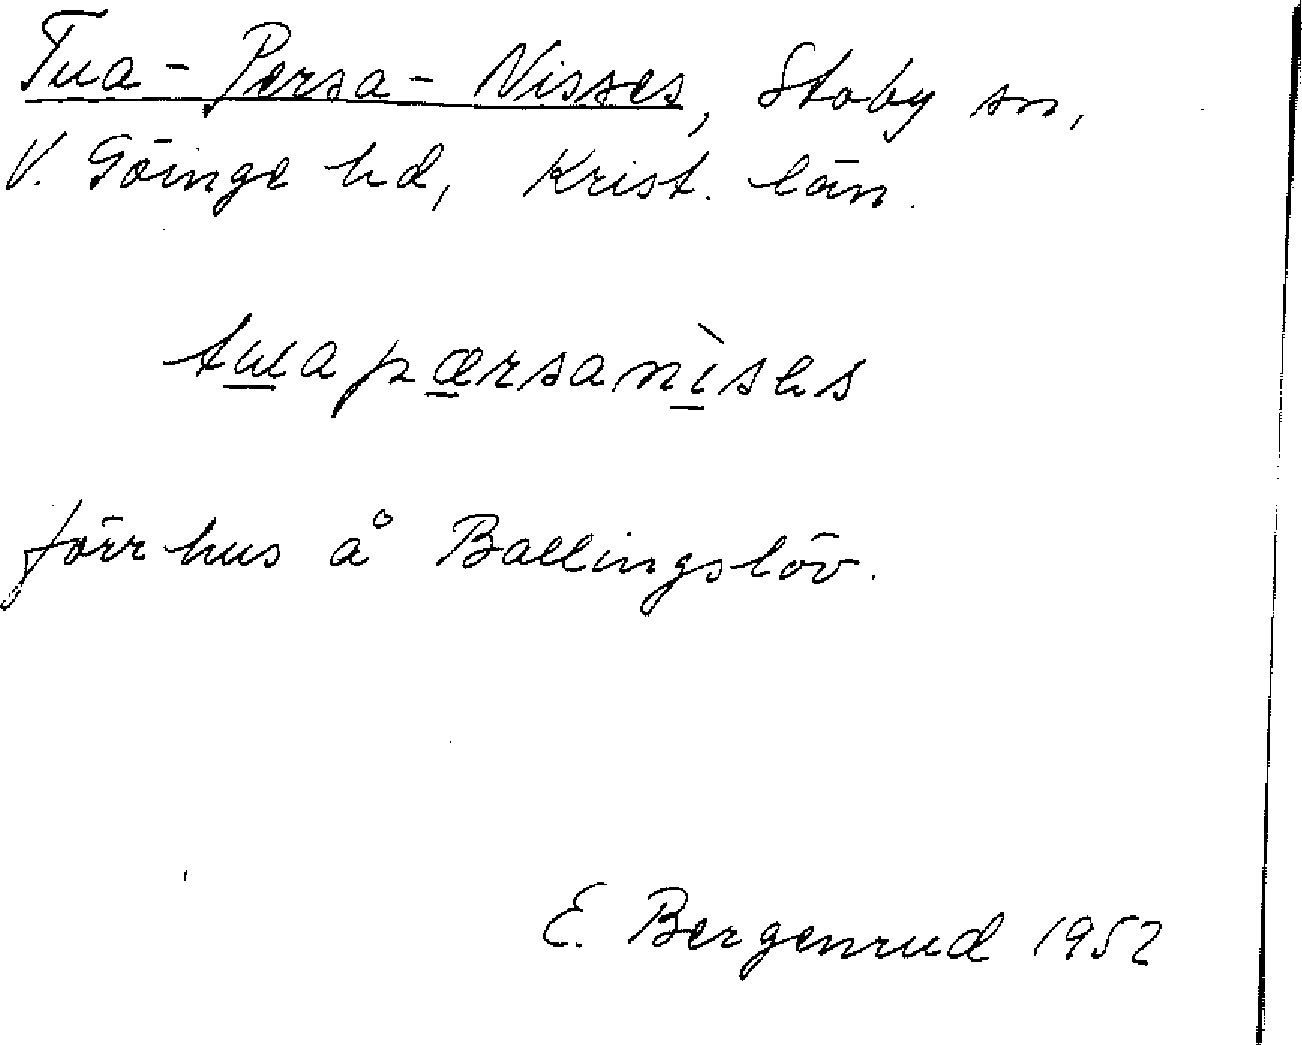 Tua-Persa-Nisses, Stoby sn,
V. Göinge hd, Krist. län.
tuapærsanìses
förr hus å Ballingslöv.
E. Bergenrud 1952